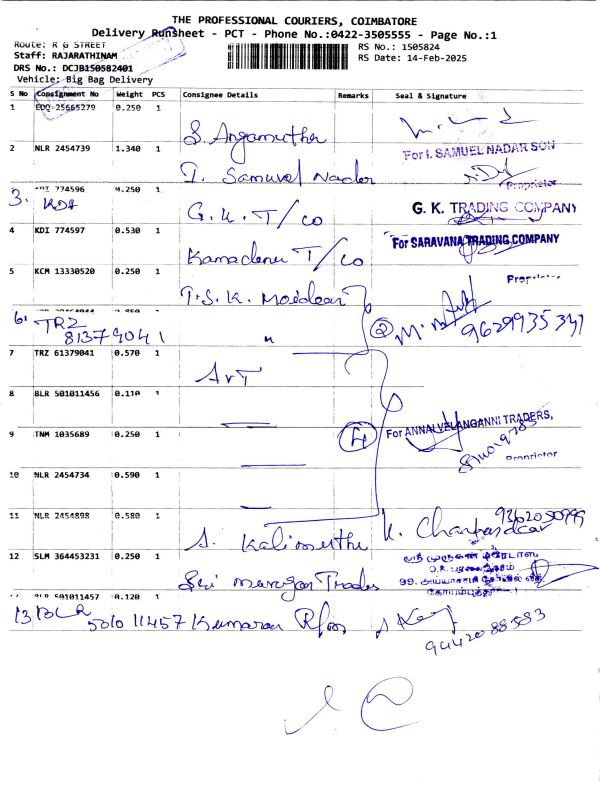 THE PROFESSIONAL COURIERS, COIMBATORE
Delivery Runsheet - PCT - Phone No.:0422-3505555 - Page No.:1
Route: R G STREET
RS No.: 1505824
Staff: RAJARATHINAM
RS Date: 14-Feb-2025
DRS No.: DCJB150582401
Vehicle: Big Bag Delivery
S No Consignment No Weight PCS Consignee Details Remarks Seal & Signature
1 25665279 0.250 1
S. Angamuthu
2 NLR 2454739 1.340 1
For I. SAMUEL NADAR SON
I. Samuvel Nader
Proprietor
3. KDI 774596 0.250 1
G. K. T/co
G. K. TRADING COMPANY
4 KDI 774597 0.530 1
Kamadenu T/co
For SARAVANA TRADING COMPANY
5 KCM 13330520 0.250 1
Proprietor
T.S.K. Moideen
6. TRZ
81379041
9629935341
7 TRZ 61379041 0.570 1
ArT
8 BLR 501011456 0.110 1
4
For ANNAI VELANGANNI TRADERS,
9 TNM 1035689 0.250 1
Proprietor
10 NLR 2454734 0.590 1
11 NLR 2454898 0.580 1
A. Kalimuthu
12 SLM 364453231 0.250 1
Sri Murugan Trades
BLR 501011457 0.120 1
13 BLR 501011457 Kumaran
9442088583